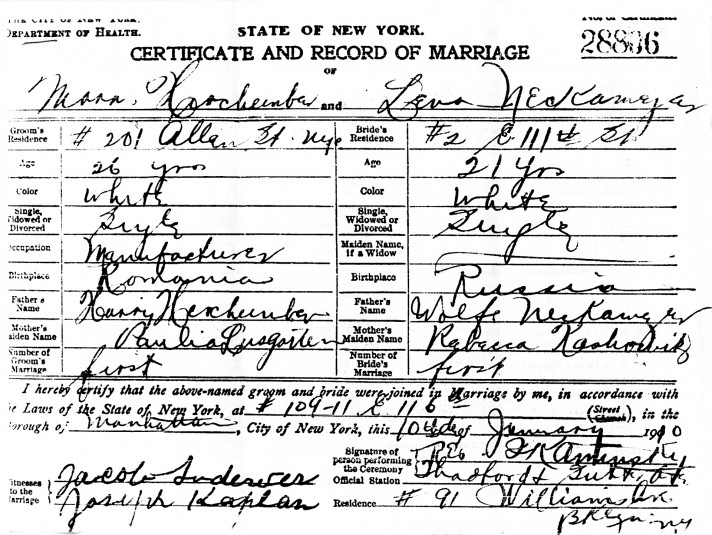 THE CITY OF NEW YORK.
DEPARTMENT OF HEALTH.
STATE OF NEW YORK.
No. of Certificate
28836
CERTIFICATE AND RECORD OF MARRIAGE
OF
and Lena Neckameyer
Groom's Residence # 201 Allen St. nyc Bride's Residence #2 E 111th St
Age 26 yrs Age 21 yrs
Color White Color White
Single, Widowed or Divorced Single Single, Widowed or Divorced Single
Occupation Manufacturer Maiden Name, if a Widow
Birthplace Romania Birthplace Russia
Father's Name Harry Father's Name Wolfe
Mother's Maiden Name Paulia Lusgarten Mother's Maiden Name Rebecca
Number of Groom's Marriage first Number of Bride's Marriage first
I hereby certify that the above-named groom and bride were joined in Marriage by me, in accordance with
the Laws of the State of New York, at # 109-11 E. 116 (Street Church), in the
Borough of Manhattan, City of New York, this 10th of January 1910
Signature of person performing the Ceremony Rev Kaminsky
Witnesses to the Marriage Jacob
Joseph Kaplan
Official Station
Residence # 91
Bklyn. ny